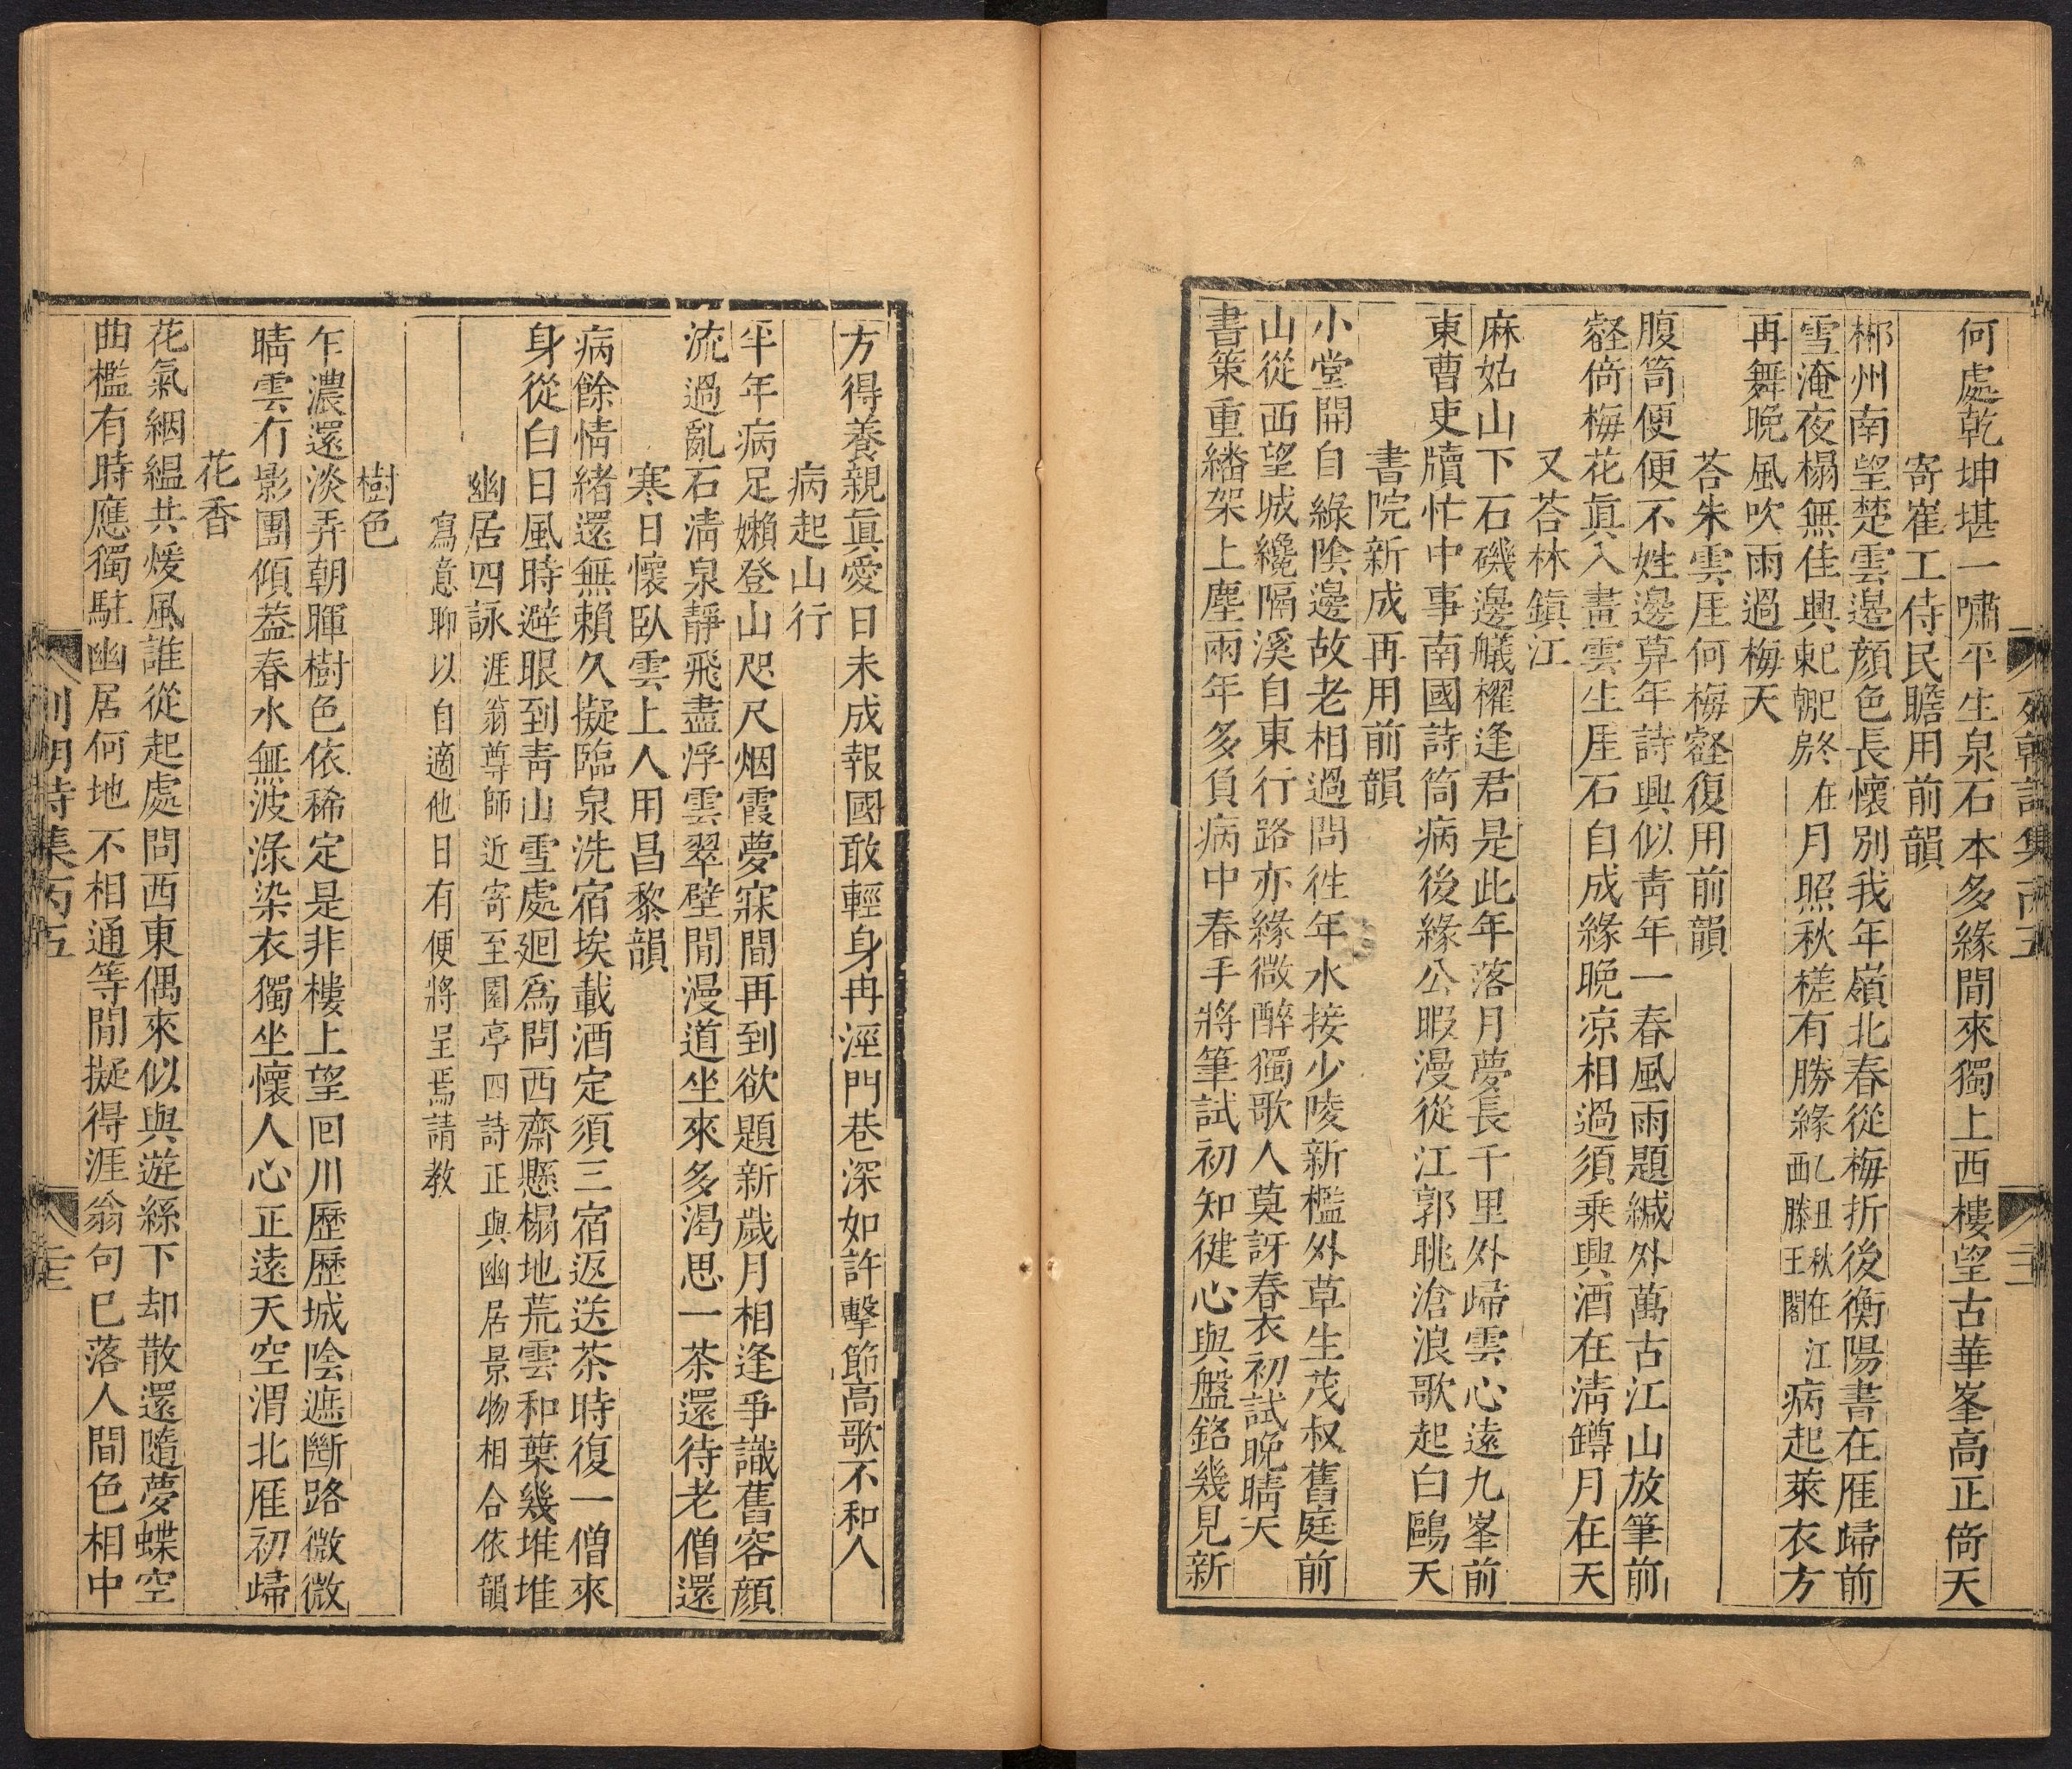 何處乾坤堪一嘯平生泉石本多緣閒來獨上西樓望古華峯高正倚天
寄崔工侍民瞻用前韻
郴州南望楚雲邊顔色長懷別我年嶺北春從梅折後衡陽書在雁歸前
雪淹夜榻無佳興月照秋槎有勝緣乙丑秋在江西滕王閣病起萊衣方
再舞晚風吹雨過梅天
荅朱雲厓何梅壑復用前韻
腹笥便便不姓邊算年詩興似靑年一春風雨題緘外萬古江山放筆前
壑倚梅花眞入畫雲生厓石自成緣晩凉相過須乗興酒在淸罇月在天
又荅林鎭江
麻姑山下石磯邊艤櫂逢君是此年落月夢長千里外歸雲心遠九峯前
東曹吏牘忙中事南國詩筒病後緣公暇漫從江郭眺滄浪歌起白鷗天
書院新成再用前韻
小堂開自綠陰邊故老相過問徃年水接少陵新檻外草生茂叔舊庭前
山從西望城纔隔溪自東行路亦緣微醉獨歌人莫訝春衣初試晚晴天
書策重繙架上塵兩年多負病中春手將筆試初知健心與盤銘幾見新
方得養親眞愛日未成報國敢輕身冉溼門巷深如許擊節高歌不和人
病起山行
半年病足嬾登山咫尺烟霞夢寐間再到欲題新歲月相逢爭識舊容顔
流過亂石淸泉靜飛盡浮雲翠壁閒漫道坐來多渴思一茶還待老僧還
寒日懷臥雲上人用昌黎韻
病餘情緒還無賴久擬臨泉洗宿埃載酒定須三宿返送茶時復一僧來
身從白日風時避眼到靑山雪處廻爲問西齋懸榻地荒雲和葉幾堆堆
幽居四詠涯翁尊師近寄至園亭四詩正與幽居景物相合依韻
寫意聊以自適他日有便將呈焉請教
樹色
乍濃還淡弄朝暉樹色依稀定是非樓上望回川歷歷城陰遮斷路微微
晴雲冇影團傾葢春水無波淥染衣獨坐懷人心正遠天空渭北雁初歸
花香
花氣絪縕共煖風誰從起處問西東偶來似與遊絲下却散還隨夢蝶空
曲檻有時應獨駐幽居何地不相通等閒擬得涯翁句已落人間色相中